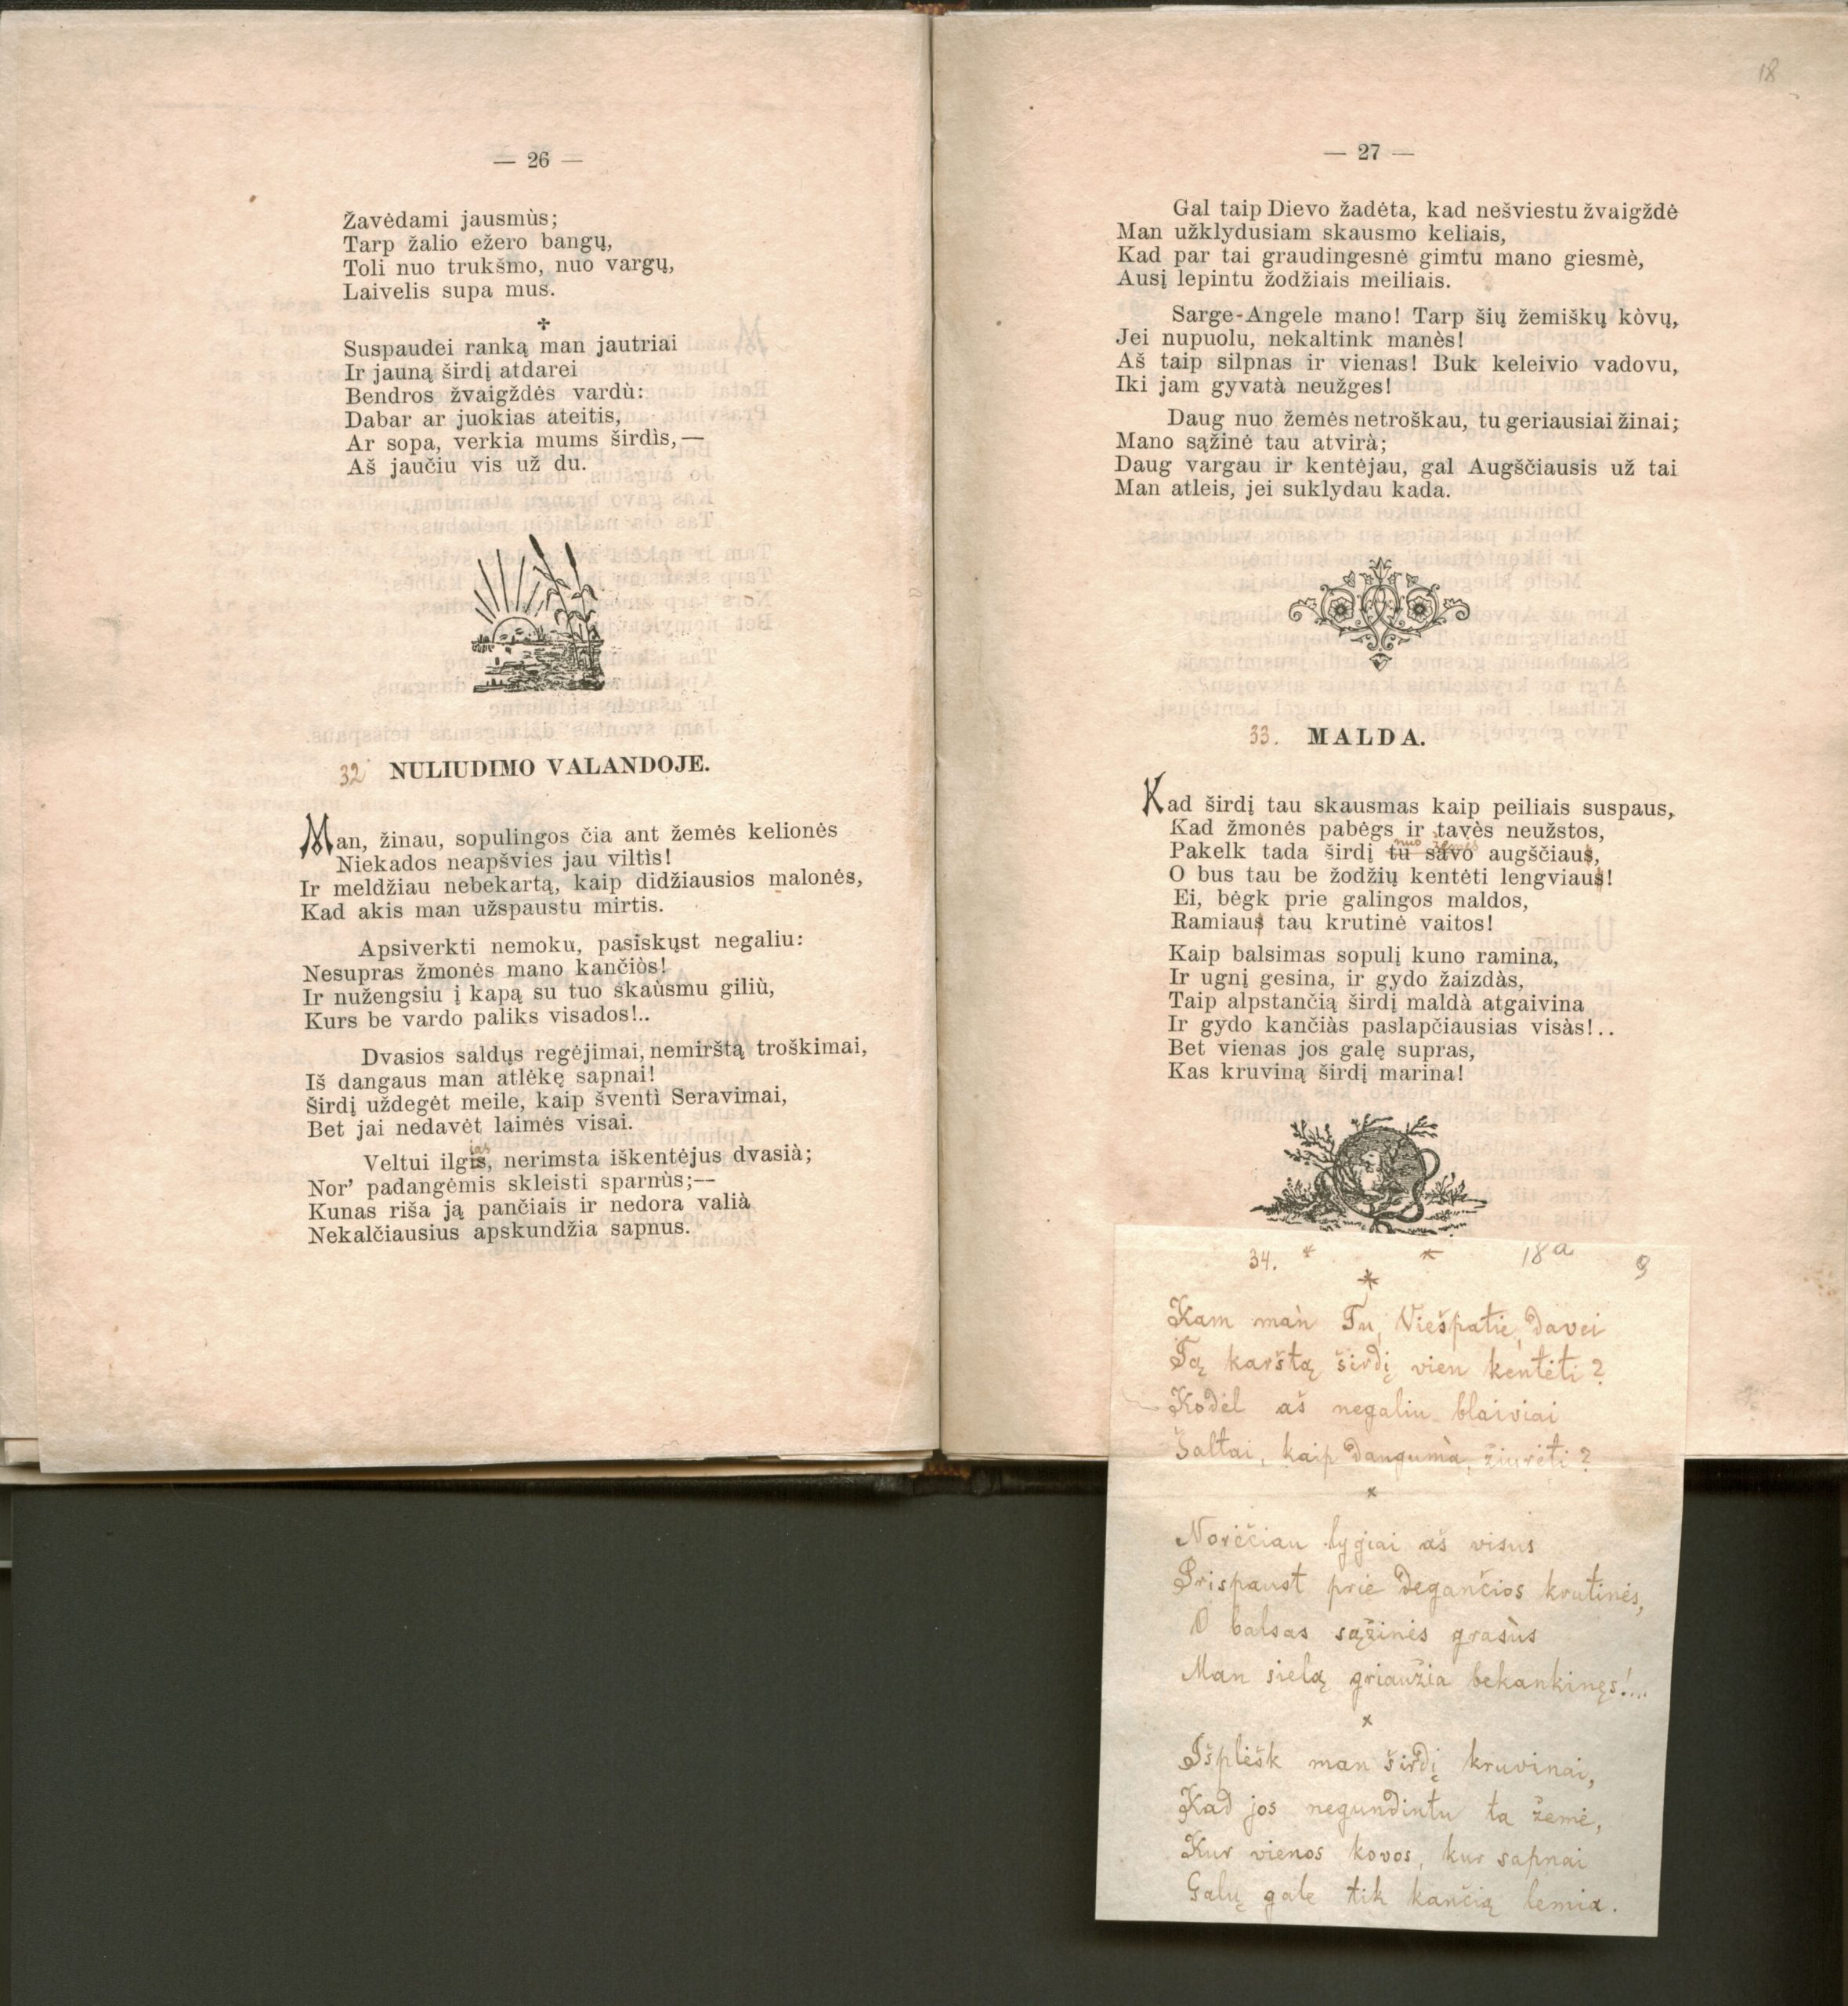 — 26 —
Žavėdami jausmùs;
Tarp žalio ežero bangų,
Toli nuo trukšmo, nuo vargų,
Laivelis supa mus.
Suspaudei ranką man jautriai
Ir jauną širdį atdarei
Bendros žvaigždės vardù:
Dabar ar juokias ateitis,
Ar sopa, verkia mums širdìs,—
Aš jaučiu vis už du.
32 NULIUDIMO VALANDOJE.
Man, žinau, sopulingos čia ant žemės kelionės
Niekados neapšvies jau viltìs!
Ir meldžiau nebekartą, kaip didžiausios malonės,
Kad akis man užspaustu mirtis.
Apsiverkti nemoku, pasiskųst negaliu:
Nesupras žmonės mano kančiòs!
Ir nužengsiu į kapą su tuo skaùsmu giliù,
Kurs be vardo paliks visados!..
Dvasios saldųs regėjimai, nemirštą troškimai,
Iš dangaus man atlėkę sapnai!
Širdį uždegėt meile, kaip šventì Seravimai,
Bet jai nedavėt laimės visai.
ias
Veltui ilgis, nerimsta iškentėjus dvasià;
Nor' padangėmis skleisti sparnùs;—
Kunas riša ją pančiais ir nedora valià
Nekalčiausius apskundžia sapnus.
18
— 27 —
Gal taip Dievo žadėta, kad nešviestu žvaigždė
Man užklydusiam skausmo keliais,
Kad par tai graudingesnė gimtu mano giesmė,
Ausį lepintu žodžiais meiliais.
Sarge-Angele mano! Tarp šių žemiškų kòvų,
Jei nupuolu, nekaltink manės!
Aš taip silpnas ir vienas! Buk keleivio vadovu,
Iki jam gyvatà neužges!
Daug nuo žemės netroškau, tu geriausiai žinai;
Mano sąžinė tau atvirà;
Daug vargau ir kentėjau, gal Augščiausis už tai
Man atleis, jei suklydau kada.
33. MALDA.
Kad širdį tau skausmas kaip peiliais suspaus,
Kad žmonės pabėgs ir tavès neužstos,
nuo žemės
Pakelk tada širdį tu savo augščiaus,
O bus tau be žodžių kentėti lengviaus!
Ei, bėgk prie galingos maldos,
Ramiaus tau krutinė vaitos!
Kaip balsimas sopulį kuno ramina,
Ir ugnį gesina, ir gydo žaizdàs,
Taip alpstančią širdį maldà atgaivina
Ir gydo kančiàs paslapčiausias visàs!..
Bet vienas jos galę supras,
Kas kruviną širdį marina!
34. * * 18a 9
*
Kam màn Tu, Viešpatie, davei
Tą karštą širdį vien kentėti?
Kodėl aš negaliu blaiviai
Šaltai, kaip daugumà, žiurėti?
x
Norėčiau lygiai aš visus
Prispaust prie degančios krutinės,
O balsas sąžinės grasùs
Man sielą griaužia bekankinęs!...
x
Išplėšk man širdį kruvinai,
Kad jos negundintu ta žemė,
Kur vienos kovos, kur sapnai
Galų gale tik kančią lemia.